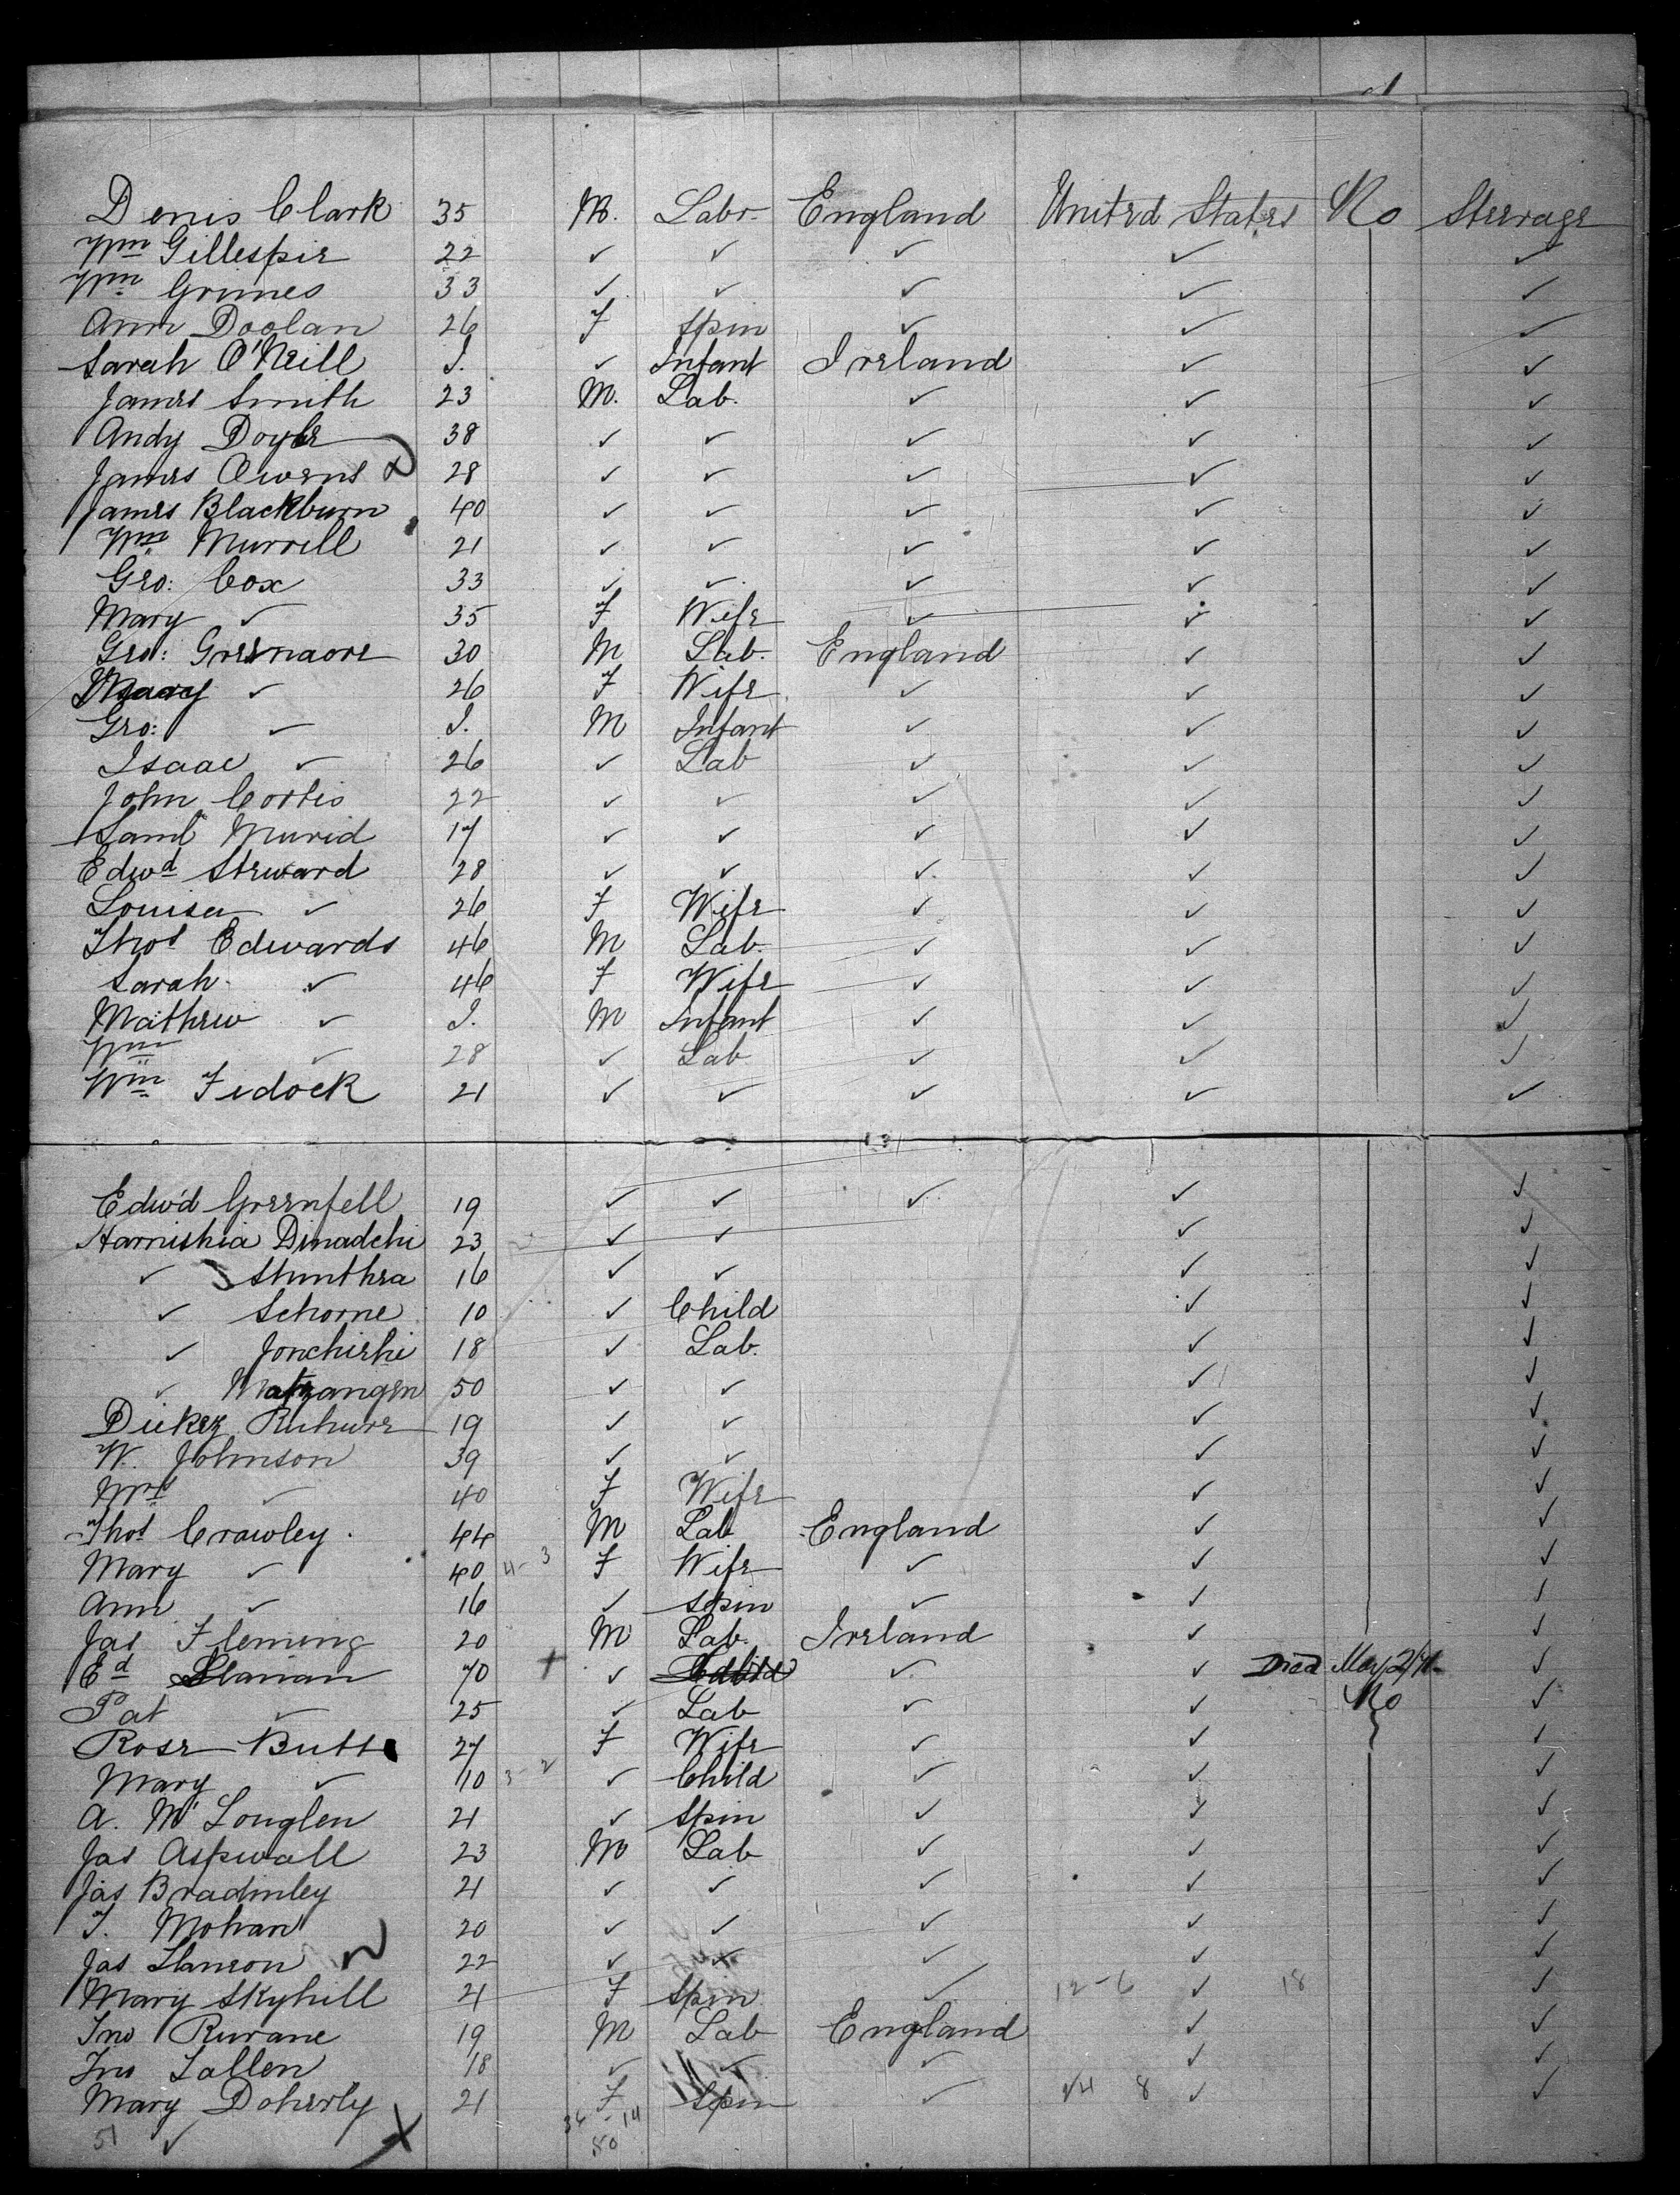 Denis Clark 35 M. Labr. England United States No Steerage
Wm Gillespie 22 ✓ ✓ ✓ ✓ ✓
Wm Grimes 33 ✓ ✓ ✓ ✓ ✓
Ann Doolan 26 F Spin ✓ ✓ ✓
Sarah O'Neill I. ✓ Infant Ireland ✓ ✓
James Smith 23 M. Lab. ✓ ✓ ✓
Andy Doyle 38 ✓ ✓ ✓ ✓ ✓
James Owens 28 ✓ ✓ ✓ ✓ ✓
James Blackburn 40 ✓ ✓ ✓ ✓ ✓
Wm Murrell 21 ✓ ✓ ✓ ✓ ✓
Geo: Cox 33 ✓ ✓ ✓ ✓ ✓
Mary ✓ 35 F Wife ✓ ✓ ✓
Geo: Greenaore 30 M Lab. England ✓ ✓
Mary ✓ 26 F Wife ✓ ✓ ✓
Geo: ✓ I. M Infant ✓ ✓ ✓
Isaac ✓ 26 ✓ Lab ✓ ✓ ✓
John Cortis 22 ✓ ✓ ✓ ✓ ✓
Saml Murid 17 ✓ ✓ ✓ ✓ ✓
Edwd Steward 28 ✓ ✓ ✓ ✓ ✓
Louisa ✓ 26 F Wife ✓ ✓ ✓
Thos Edwards 46 M Lab. ✓ ✓ ✓
Sarah ✓ 46 F Wife ✓ ✓ ✓
Mathew ✓ I. M Infant ✓ ✓ ✓
Wm ✓ 28 ✓ Lab ✓ ✓ ✓
Wm Fidock 21 ✓ ✓ ✓ ✓ ✓
Edwd Greenfell 19 ✓ ✓ ✓ ✓ ✓
Harnishia Dinadchi 23 ✓ ✓ ✓ ✓
✓ Stunthea 16 ✓ ✓ ✓ ✓
✓ Schorne 10 ✓ Child ✓ ✓
✓ Jonchishi 18 ✓ Lab. ✓ ✓
✓ 50 ✓ ✓ ✓ ✓
19 ✓ ✓ ✓ ✓
W. Johnson 39 ✓ ✓ ✓ ✓
Mrs ✓ 40 F Wife ✓ ✓
Thos Crawley 44 M Lab England ✓ ✓
Mary ✓ 40 4-3 F Wife ✓ ✓ ✓
Ann ✓ 16 ✓ Spin ✓ ✓ ✓
Jas Fleming 20 M Lab. Ireland ✓ ✓
Ed 70 + ✓ ✓ ✓ Died May 2/71 ✓
Pat ✓ 25 ✓ Lab ✓ ✓ No ✓
Rose Butt 27 F Wife ✓ ✓ ✓
Mary ✓ 10 3-2 ✓ Child ✓ ✓ ✓
A. Mc Longlen 21 ✓ Spin ✓ ✓ ✓
Jas Aspwall 23 M Lab ✓ ✓ ✓
Jas Bradinley 21 ✓ ✓ ✓ ✓ ✓
T. Mohan 20 ✓ ✓ ✓ ✓ ✓
Jas 22 ✓ ✓ ✓ ✓ ✓
Mary Skyhill 21 F Spin ✓ 12-6 ✓ 18 ✓
Jno Ruvane 19 M Lab England ✓ ✓
Jno Lallen 18 ✓ ✓ ✓ ✓ ✓
Mary Doherly 21 F Spin ✓ 24 8 ✓ ✓
51 ✓ 36-14
50